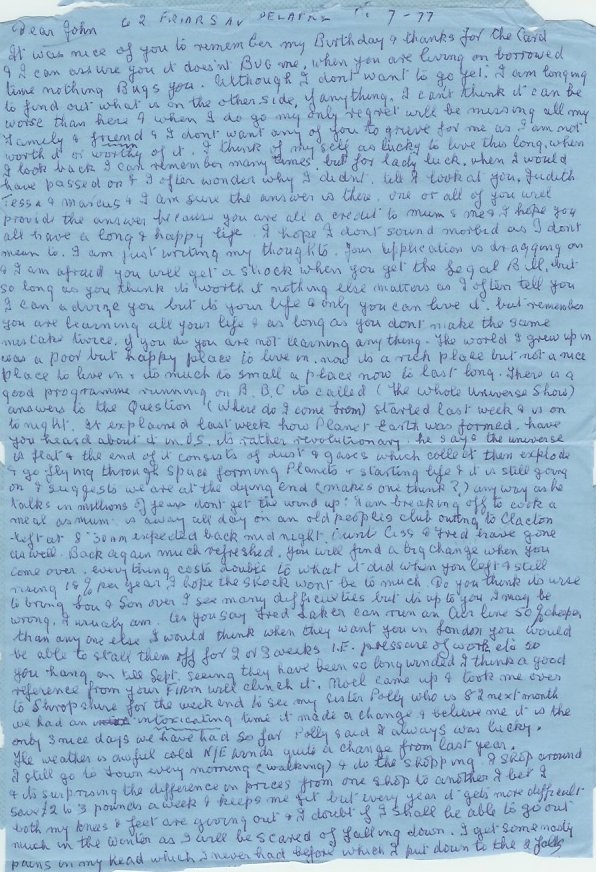 Dear John 62 FRIARS AV 7-77
It was nice of you to remember my Birthday & thanks for the Card
& I can assure you it does'nt BUG me, when you are living on borrowed
time nothing Bugs you. Although I dont want to go yet. I am longing
to find out what is on the other side, if anything. I can't think it can be
worse than here & when I do go my only regret will be missing all my
Family & friend & I dont want any of you to grieve for me as I am not
worth it or worthy of it. I think of my self as lucky to live this long, when
I look back I can remember many times but for lady luck, when I would
have passed on & I often wonder why I didnt. till I look at you, Judith
Tessa & Marcus & I am sure the answer is there. one or all of you will
provide the answer because you are all a credit to mum & me & I hope you
all have a long & happy life. I hope I dont sound morbid as I dont
mean to. I am just writing my thoughts. Your application is dragging on
& I am afraid you will get a shock when you get the Legal Bill, but
so long as you think its worth it nothing else matters as I often tell you
I can advize you but its your life & only you can live it. but remember
you are learning all your life & as long as you dont make the same
mistake twice. if you do you are not learning any thing. The world I grew up in
was a poor but happy place to live in. now its a rich place but not a nice
place to live in & its much to small a place now to last long. There is a
good programme running on B.B.C its called (The Whole Universe Show)
answers to the Question (where do I come from) started last week & is on
tonight. It explained last week how Planet Earth was formed. have
you heard about it in U.S. its rather revolutionary. he says the universe
is flat & the end of it consists of dust & gases which collect then explode
& go flying through Space forming Planets & starting life & it is still going
on & suggests we are at the dying end (makes one think?) any way as he
talks in millions of years dont get the wind up! I am breaking off to cook a
meal as mum is away all day on an old peoples club outing to Clacton
left at 8.30am expected back mid night. Aunt Ciss & Fred have gone
as well. Back again much refreshed. you will find a big change when you
come over. everything costs double to what it did when you left & still
rising 18% per year I hope the shock wont be to much. Do you think its wise
to bring Lou & Son over I see many difficulties but its up to you I may be
wrong. I usually am. As you say Fred Laker can run an Air line 50% cheaper
than any one else I would think when they want you in London you would
be able to stall them off for 2 or 3 weeks I.E. pressure of work etc so
you hang on till Sept. seeing they have been so long winded I think a good
reference from your Firm will clinch it. Noell came up & took me over
to Shropshire for the weekend to see my sister Polly who is 82 next month
we had an intoxicating time it made a change & believe me it is the
only 3 nice days we have had so far Polly said I always was lucky.
The weather is awful cold N/E winds quite a change from last year.
I still go to town every morning (walking) & do the shopping & shop around
& its surprising the difference in prices from one shop to another I bet I
save 2 to 3 pounds a week & keeps me fit but every year it gets more difficult
both my knees & feet are giving out & I doubt if I shall be able to go out
much in the winter as I will be scared of falling down. I get some nasty
pains in my head which I never had before which I put down to the 2 falls